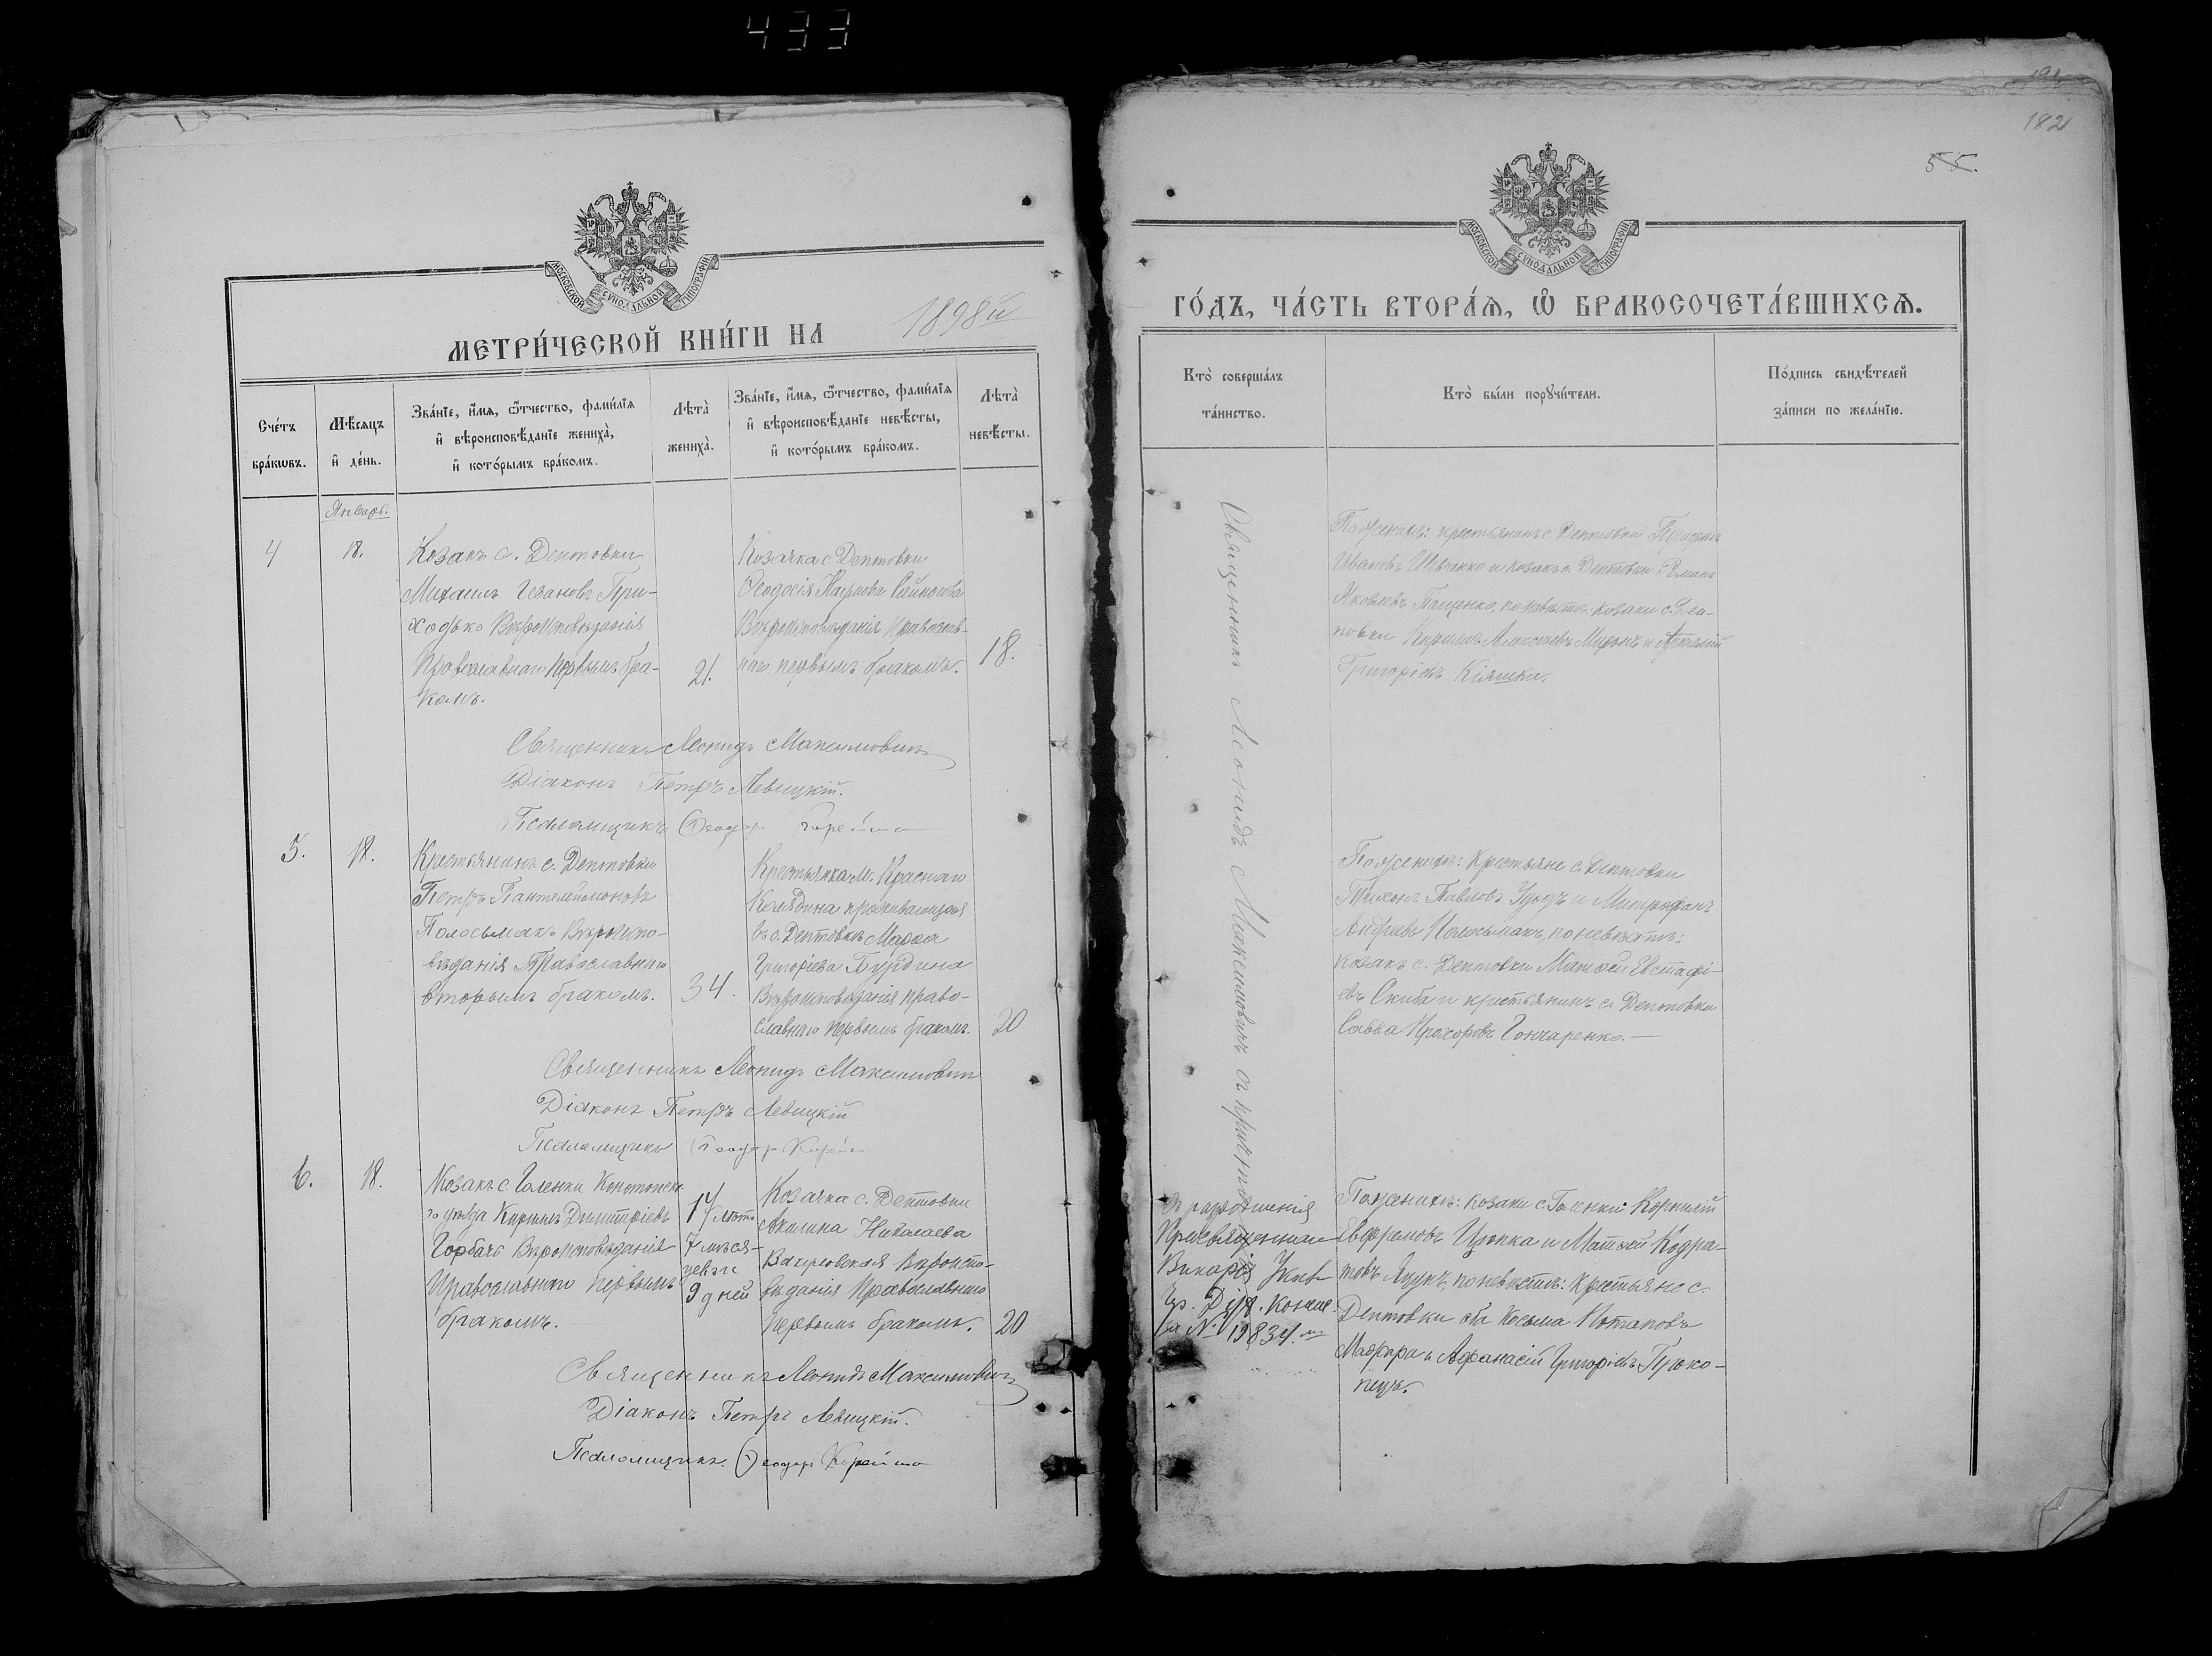 433
МОСКОВСКОЙ СУНОДАЛЬНОЙ ТИПОГРАФІИ
МЕТРИ́ЧЕСКОЙ КНИ́ГИ НА 1898й
Сче́тъ бра́кѡвъ.
Мѣ́сяцъ и҆ де́нь.
Зва́нїе, и҆́мѧ, ѻ҆́тчество, фами́лїѧ
и҆ вѣроисповѣ́данїе жениха̀,
и҆ кото́рымъ бра́комъ.
Лѣта̀
жениха̀.
Зва́нїе, и҆́мѧ, ѻ҆́тчество, фами́лїѧ
и҆ вѣроисповѣ́данїе невѣ́сты,
и҆ кото́рымъ бра́комъ.
Лѣта̀
невѣ́сты.
Январь.
4
18.
Козакъ с. Дептовки
Михаилъ Ивановъ При-
ходько Вѣроисповѣданія
Православнаго первымъ бра-
комъ.
21.
Козачка с. Дептовки
Ѳеодосія Наумова
Вѣроисповѣданія Православ-
наго первымъ бракомъ.
18.
Священникъ Леонидъ Максимовичъ
Діаконъ Петръ Левицкій.
Псаломщикъ Ѳеодоръ
5.
18.
Крестьянинъ с. Дептовки
Петръ Пантелеймоновъ
Полосьмакъ Вѣроиспо-
вѣданія Православнаго
вторымъ бракомъ.
34.
Крестьянка м. Краснаго
Колядина проживающая
въ с. Дептовкѣ Марѳа
Григоріева
Вѣроисповѣданія право-
славнаго первымъ бракомъ.
20
Священникъ Леонидъ Максимовичъ
Діаконъ Петръ Левицкій
Псаломщикъ Ѳеодоръ
6.
18.
Козакъ с. Галенки Конотопска-
го уѣзда Кириллъ Димитріевъ
Горбачъ Вѣроисповѣданія
Православнаго первымъ
бракомъ.
17 лѣтъ
7 мѣся-
цевъ и
9 дней
Козачка с. Дептовки
Акилина Николаева
Вѣроиспо-
вѣданія Православнаго
первымъ бракомъ.
20
Священникъ Леонидъ Максимовичъ
Діаконъ Петръ Левицкій.
Псаломщикъ. Ѳеодоръ
182
55.
МОСКОВСКОЙ СУНОДАЛЬНОЙ ТИПОГРАФІИ
ГО́ДЪ, ЧА́СТЬ ВТОРА́Ѧ, Ѡ҆ БРАКОСОЧЕТА́ВШИХСѦ.
Кто̀ соверша́лъ
та́инство.
Кто̀ бы́ли порꙋчи́тели.
По́дпись свидѣ́телей
за́писи по жела́нїю.
Священникъ Леонидъ Максимовичъ съ причтомъ
По женихѣ: крестьянинъ с. Дептовки
Ивановъ Шевченко и козакъ с. Дептовки Романъ
Яковлевъ Пащенко, по невѣстѣ: козаки с. Деп-
товки Кириллъ Алексѣевъ и Артемій
Григоріевъ Кіяшка.
По женихѣ: Крестьяне с. Дептовки
Тихонъ Павловъ Удодъ и Митрофанъ
Андреевъ Полосьмакъ, по невѣстѣ:
козакъ с. Дептовки Матѳей Евстафі-
евъ Скиба и крестьянинъ с. Дептовки
Савва Прохоровъ Гончаренко.—
Съ разрѣшенія
Преосвященнаго
Викарія
за № 19834.
По женихѣ: козаки с. Галенки Корнилій
Евфремовъ Цюпка и Матѳей Кодра-
товъ Яцукъ, по невѣстѣ: Крестьяне с.
Дептовки оба Косьма Потаповъ
и Афанасій Григоріевъ